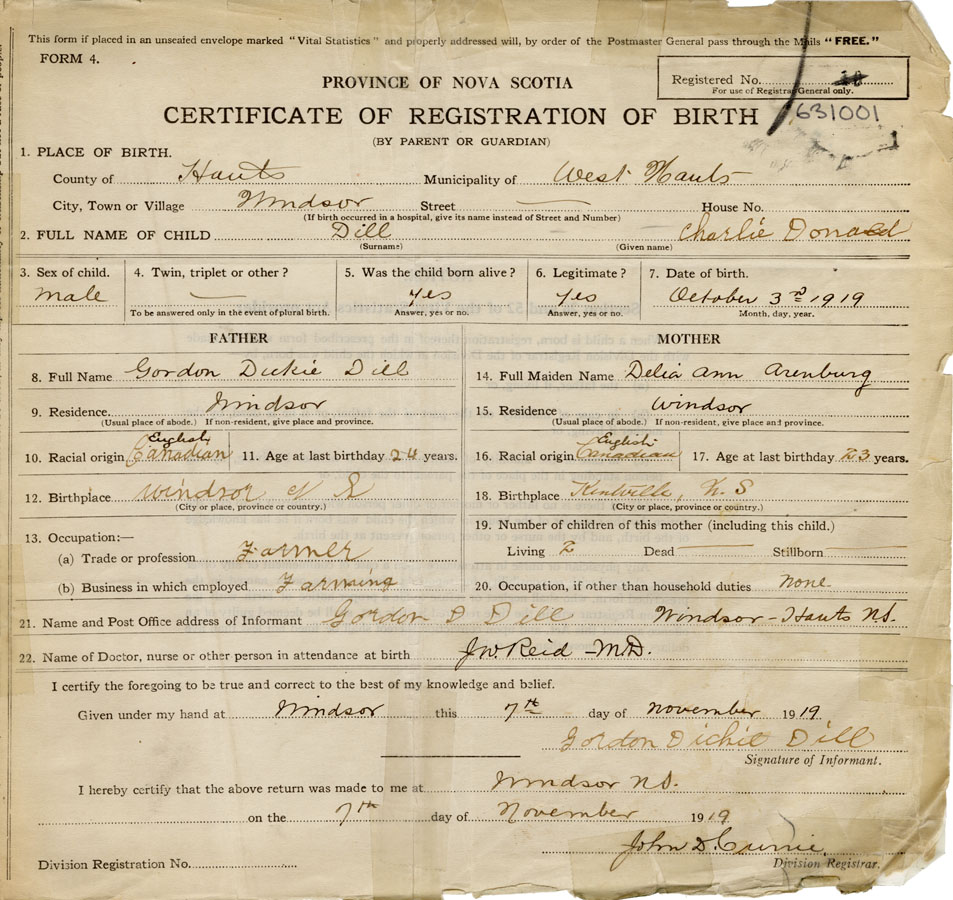 This form if placed in an unsealed envelope marked "Vital Statistics" and properly addressed will, by order of the Postmaster General pass through the Mails "FREE."
FORM 4.
PROVINCE OF NOVA SCOTIA
Registered No. 18
For use of Registrar General only.
CERTIFICATE OF REGISTRATION OF BIRTH
631001
(BY PARENT OR GUARDIAN)
1. PLACE OF BIRTH.
County of Hants Municipality of West Hants
City, Town or Village Windsor Street — House No.
(If birth occurred in a hospital, give its name instead of Street and Number)
2. FULL NAME OF CHILD Dill Charlie Donald
(Surname) (Given name)
3. Sex of child. 4. Twin, triplet or other? 5. Was the child born alive? 6. Legitimate? 7. Date of birth.
Male — yes yes October 3rd 1919
To be answered only in the event of plural birth. Answer, yes or no. Answer, yes or no. Month, day, year.
FATHER MOTHER
8. Full Name Gordon Dickie Dill 14. Full Maiden Name Delia Ann Arenburg
9. Residence. Windsor 15. Residence Windsor
(Usual place of abode.) If non-resident, give place and province. (Usual place of abode.) If non-resident, give place and province.
English English
10. Racial origin Canadian 11. Age at last birthday 24 years. 16. Racial origin Canadian 17. Age at last birthday 23 years.
12. Birthplace Windsor N S 18. Birthplace Kentville, N. S
(City or place, province or country.) (City or place, province or country.)
19. Number of children of this mother (including this child.)
13. Occupation:—
(a) Trade or profession Farmer Living 2 Dead — Stillborn —
(b) Business in which employed Farming 20. Occupation, if other than household duties none
21. Name and Post Office address of Informant Gordon D Dill Windsor - Hants N.S.
22. Name of Doctor, nurse or other person in attendance at birth J.W. Reid - M.D.
I certify the foregoing to be true and correct to the best of my knowledge and belief.
Given under my hand at Windsor this 7th day of November 1919
Gordon Dickie Dill
Signature of Informant.
I hereby certify that the above return was made to me at Windsor N.S.
on the 7th day of November 1919
John D. Currie
Division Registration No. Division Registrar.